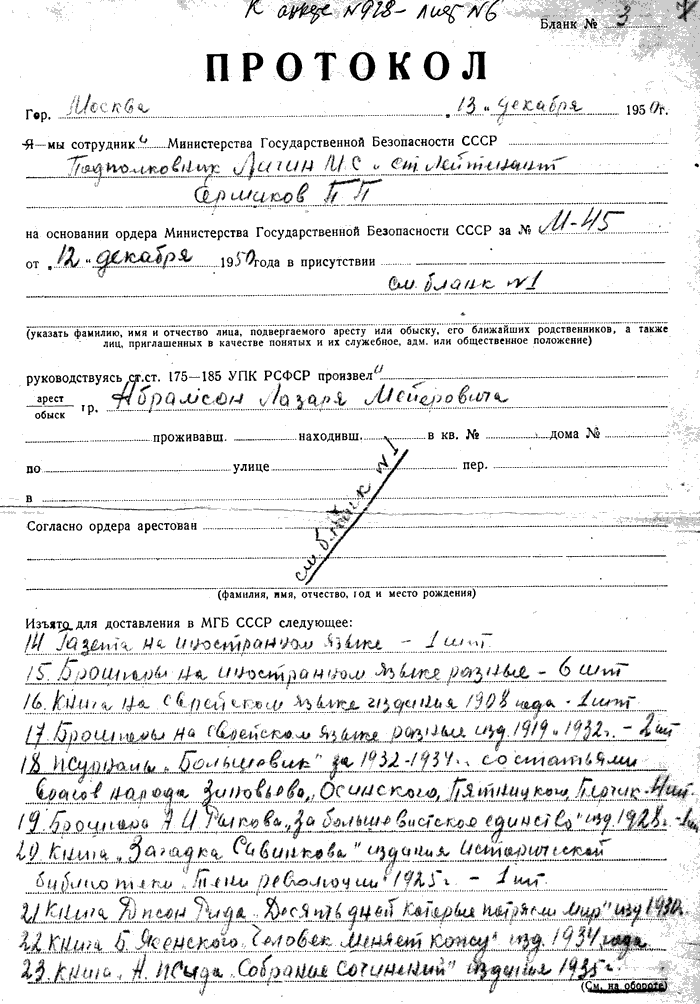 К анкете №928 – лист №6
Бланк № 3
ПРОТОКОЛ
Гор. Москва „13" декабря 1950г.
Я—мы сотрудники Министерства Государственной Безопасности СССР
Подполковник Лигин М С и ст лейтенант
Ермаков П П
на основании ордера Министерства Государственной Безопасности СССР за № М-45
от „12" декабря 1950 года в присутствии
см. бланк №1
(указать фамилию, имя и отчество лица, подвергаемого аресту или обыску, его ближайших родственников, а также
лиц, приглашенных в качестве понятых и их служебное, адм. или общественное положение)
руководствуясь ст.ст. 175—185 УПК РСФСР произвели
арест
обыск гр. Абрамсон Лазаря Мееровича
проживавш. находивш. в кв. № дома №
по улице пер.
в
см. бланк №1
Согласно ордера арестован
(фамилия, имя, отчество, год и место рождения)
Изъято для доставления в МГБ СССР следующее:
14 Газета на иностранном языке – 1 шт
15. Брошюры на иностранном языке разные – 6 шт
16. Книга на еврейском языке издания 1908 года – 1 шт
17. Брошюры на еврейском языке разные изд. 1919 и 1932г. – 2 шт
18 Журналы „Большевик" за 1932-1934г. со статьями
врагов народа Зиновьева, Осинского, Пятницкого, 4 шт
19. Брошюра А И Рыкова „За большевистское единство" изд 1928г. – 1 шт
20 Книга „Загадка Савинкова" издания исторической
библиотеки „Тени революции" 1925г. – 1 шт.
21 Книга Джон Рида „Десять дней которые потрясли мир" изд 1930г.
22 Книга Б. Ясенского „Человек меняет кожу" изд. 1934 года
23. Книга „А. Жида „Собрание сочинений" издания 1935г.
(См. на обороте)